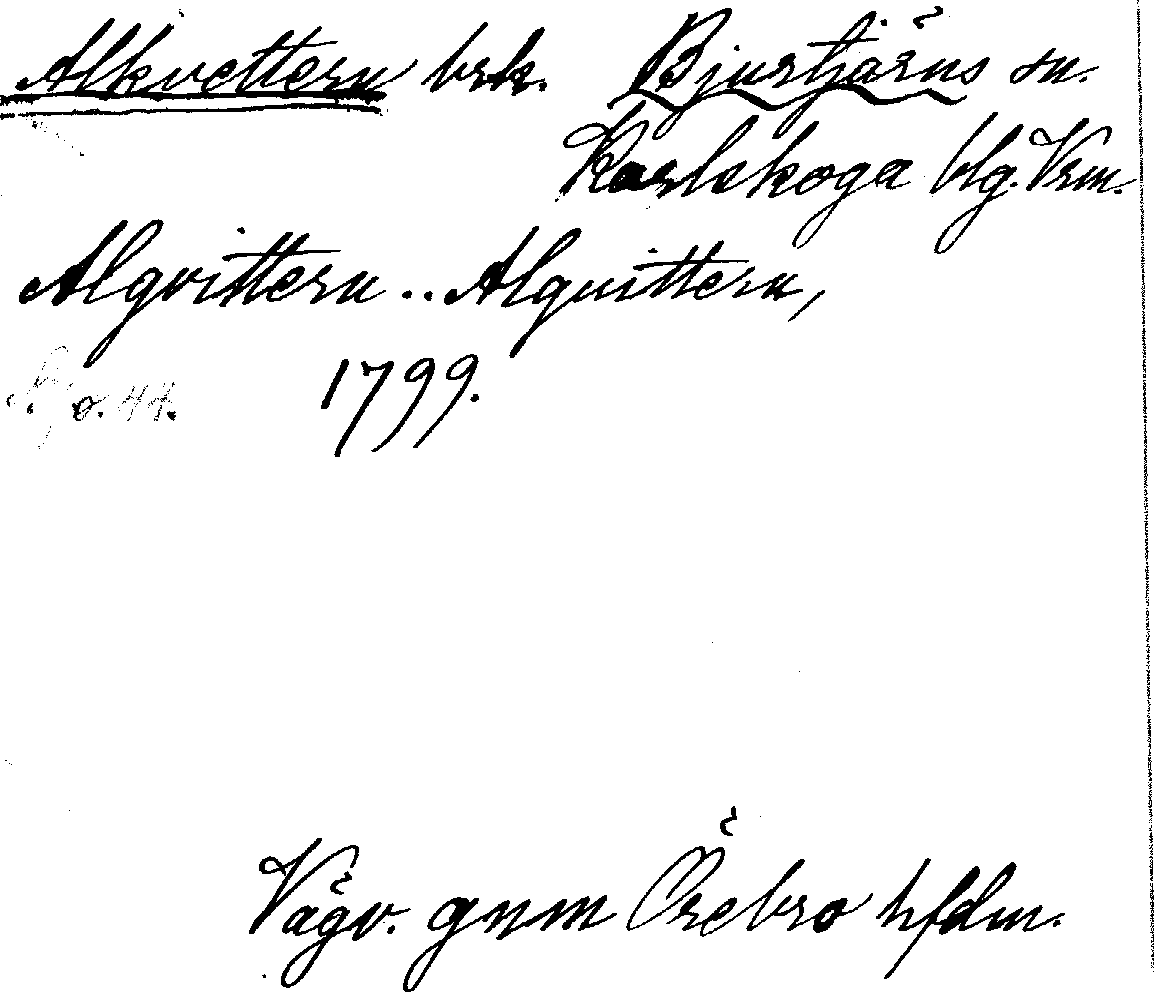 Alkvettern brk. Bjurtjärns sn.
Karlskoga blg. Vrm.
Algvittern .. Alguittern,
1799.
Vägv. gnm Örebro hfdm.